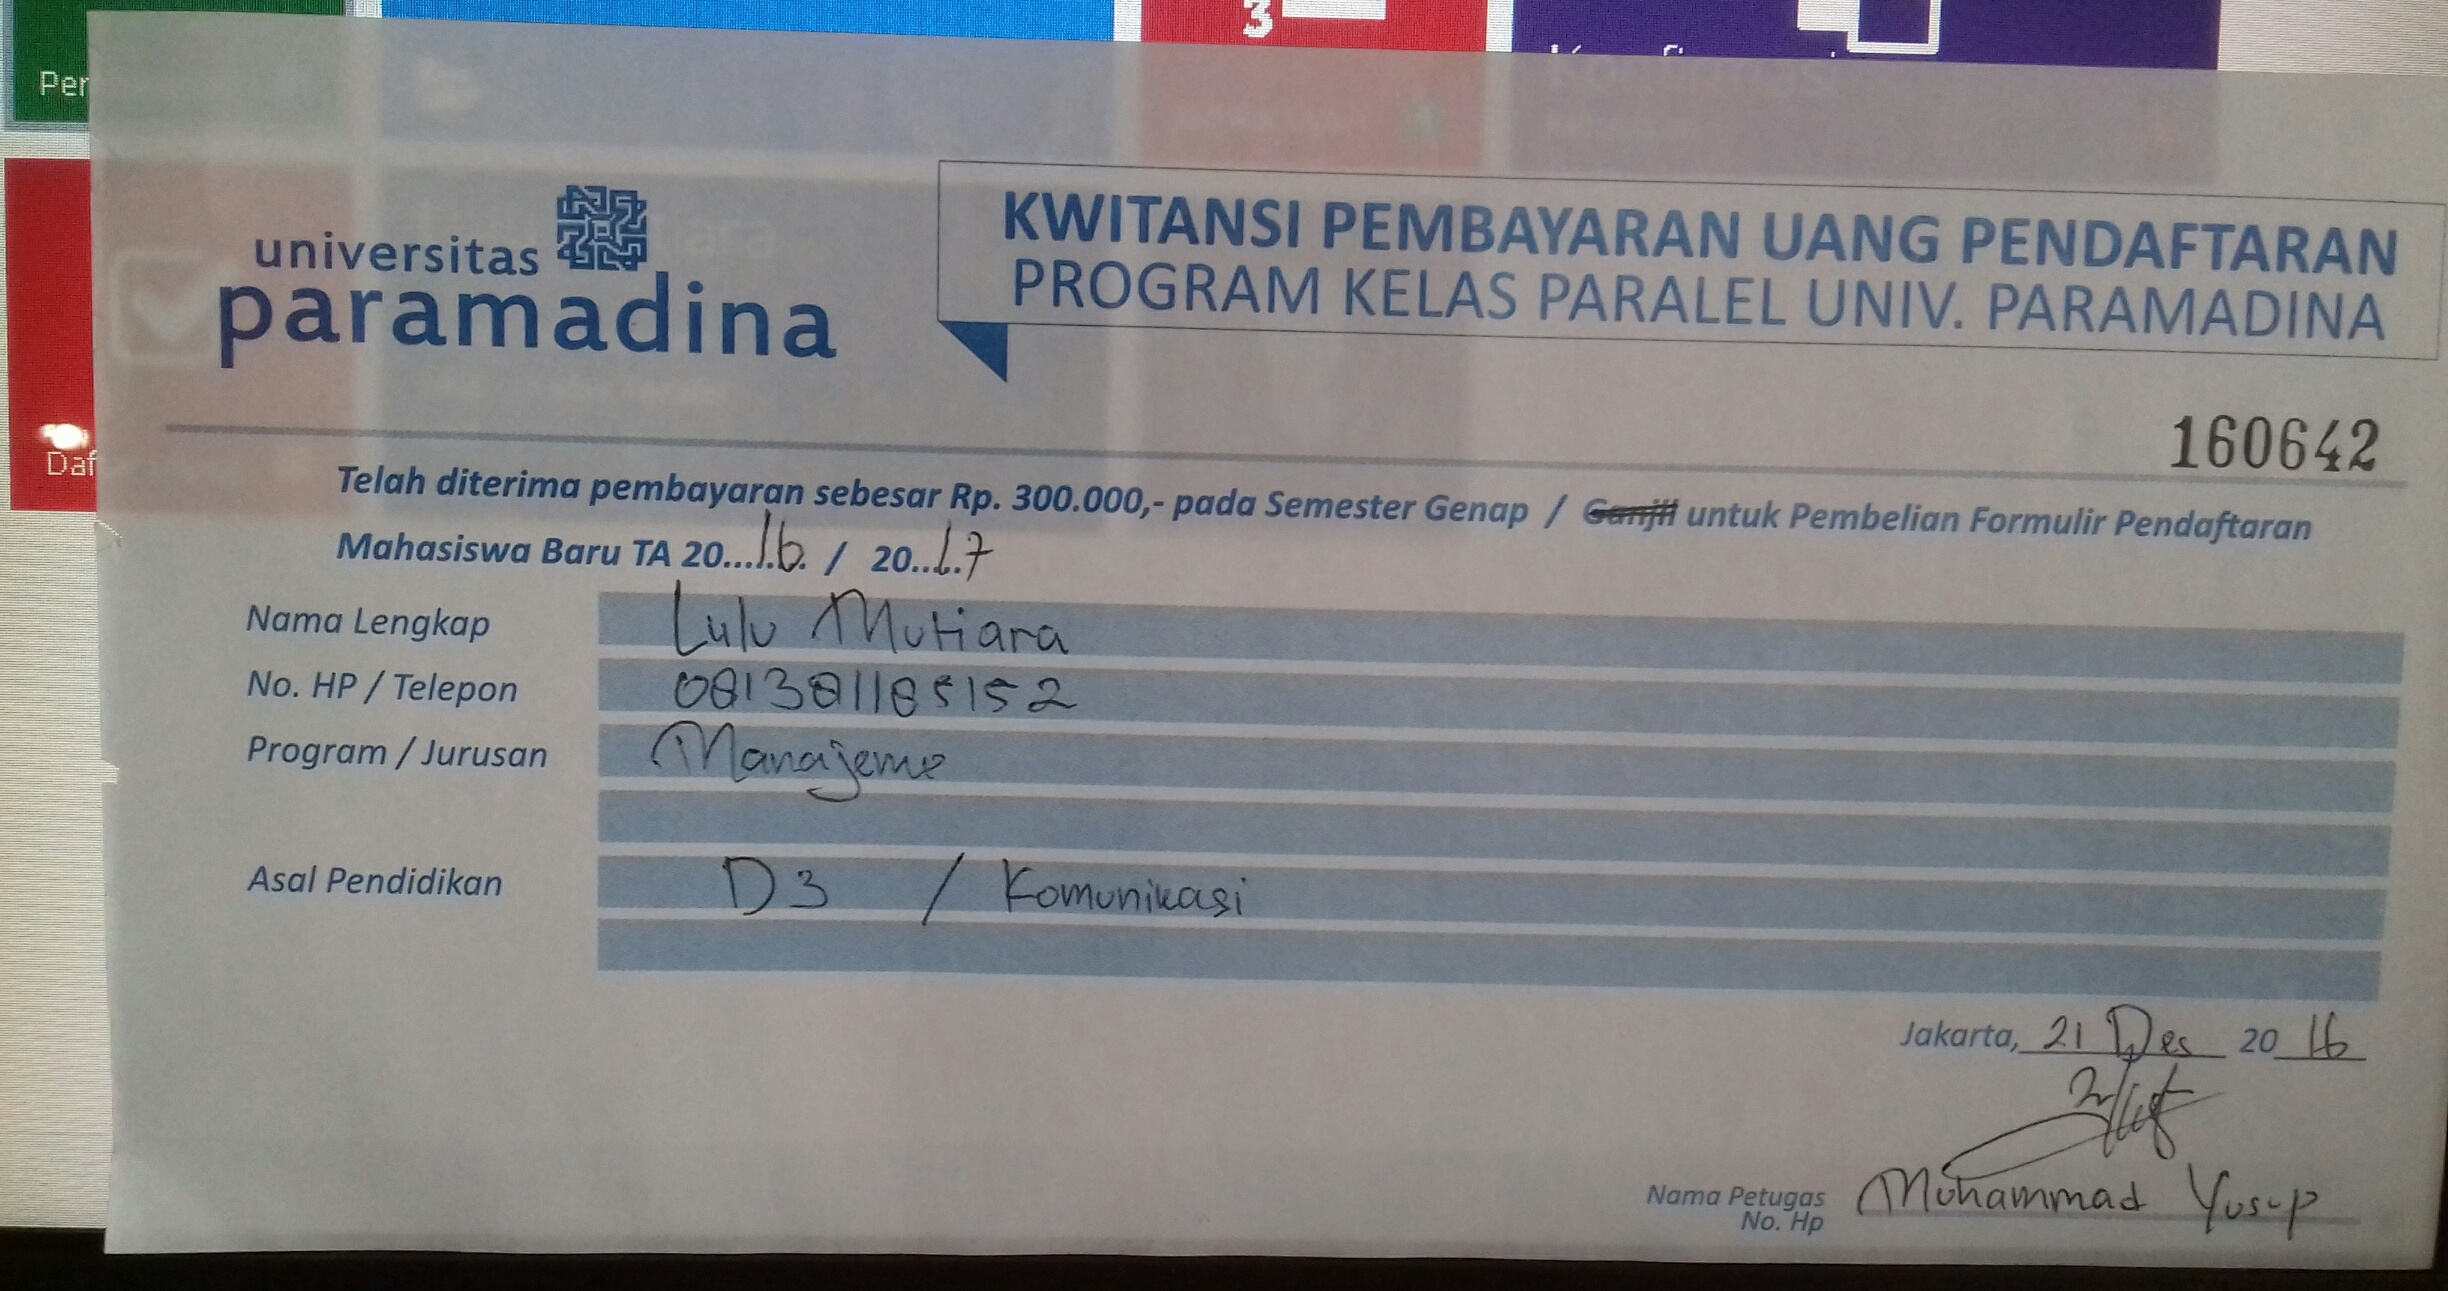 Per
3
universitas
paramadina
KWITANSI PEMBAYARAN UANG PENDAFTARAN
PROGRAM KELAS PARALEL UNIV. PARAMADINA
Daf
160642
Telah diterima pembayaran sebesar Rp. 300.000,- pada Semester Genap / Ganjil untuk Pembelian Formulir Pendaftaran
Mahasiswa Baru TA 20...16. / 20..17
Nama Lengkap Lulu Mutiara
No. HP / Telepon 081381185152
Program / Jurusan Manajeme
Asal Pendidikan D3 / Komunikasi
Jakarta, 21 Des 20 16
Nama Petugas Muhammad Yusup
No. Hp